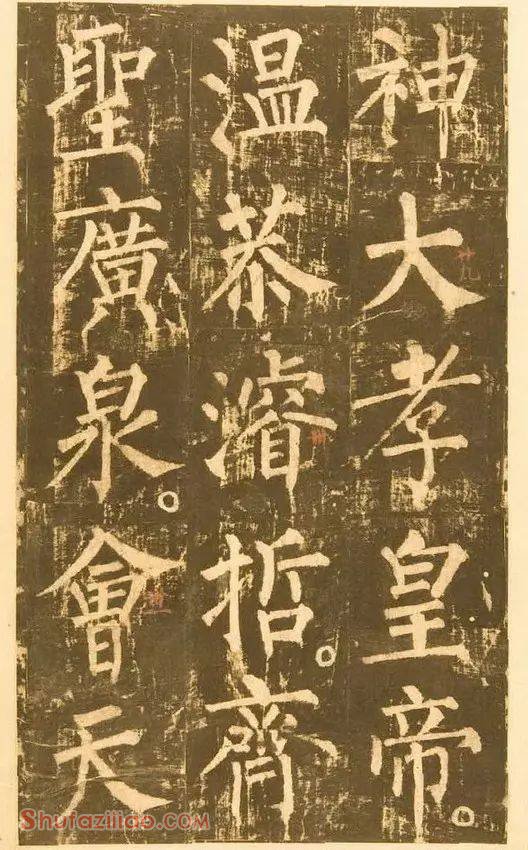 神大孝皇帝。
温恭濬哲。齊
聖廣泉。會天
廿九
卅
Shufaziliao.com